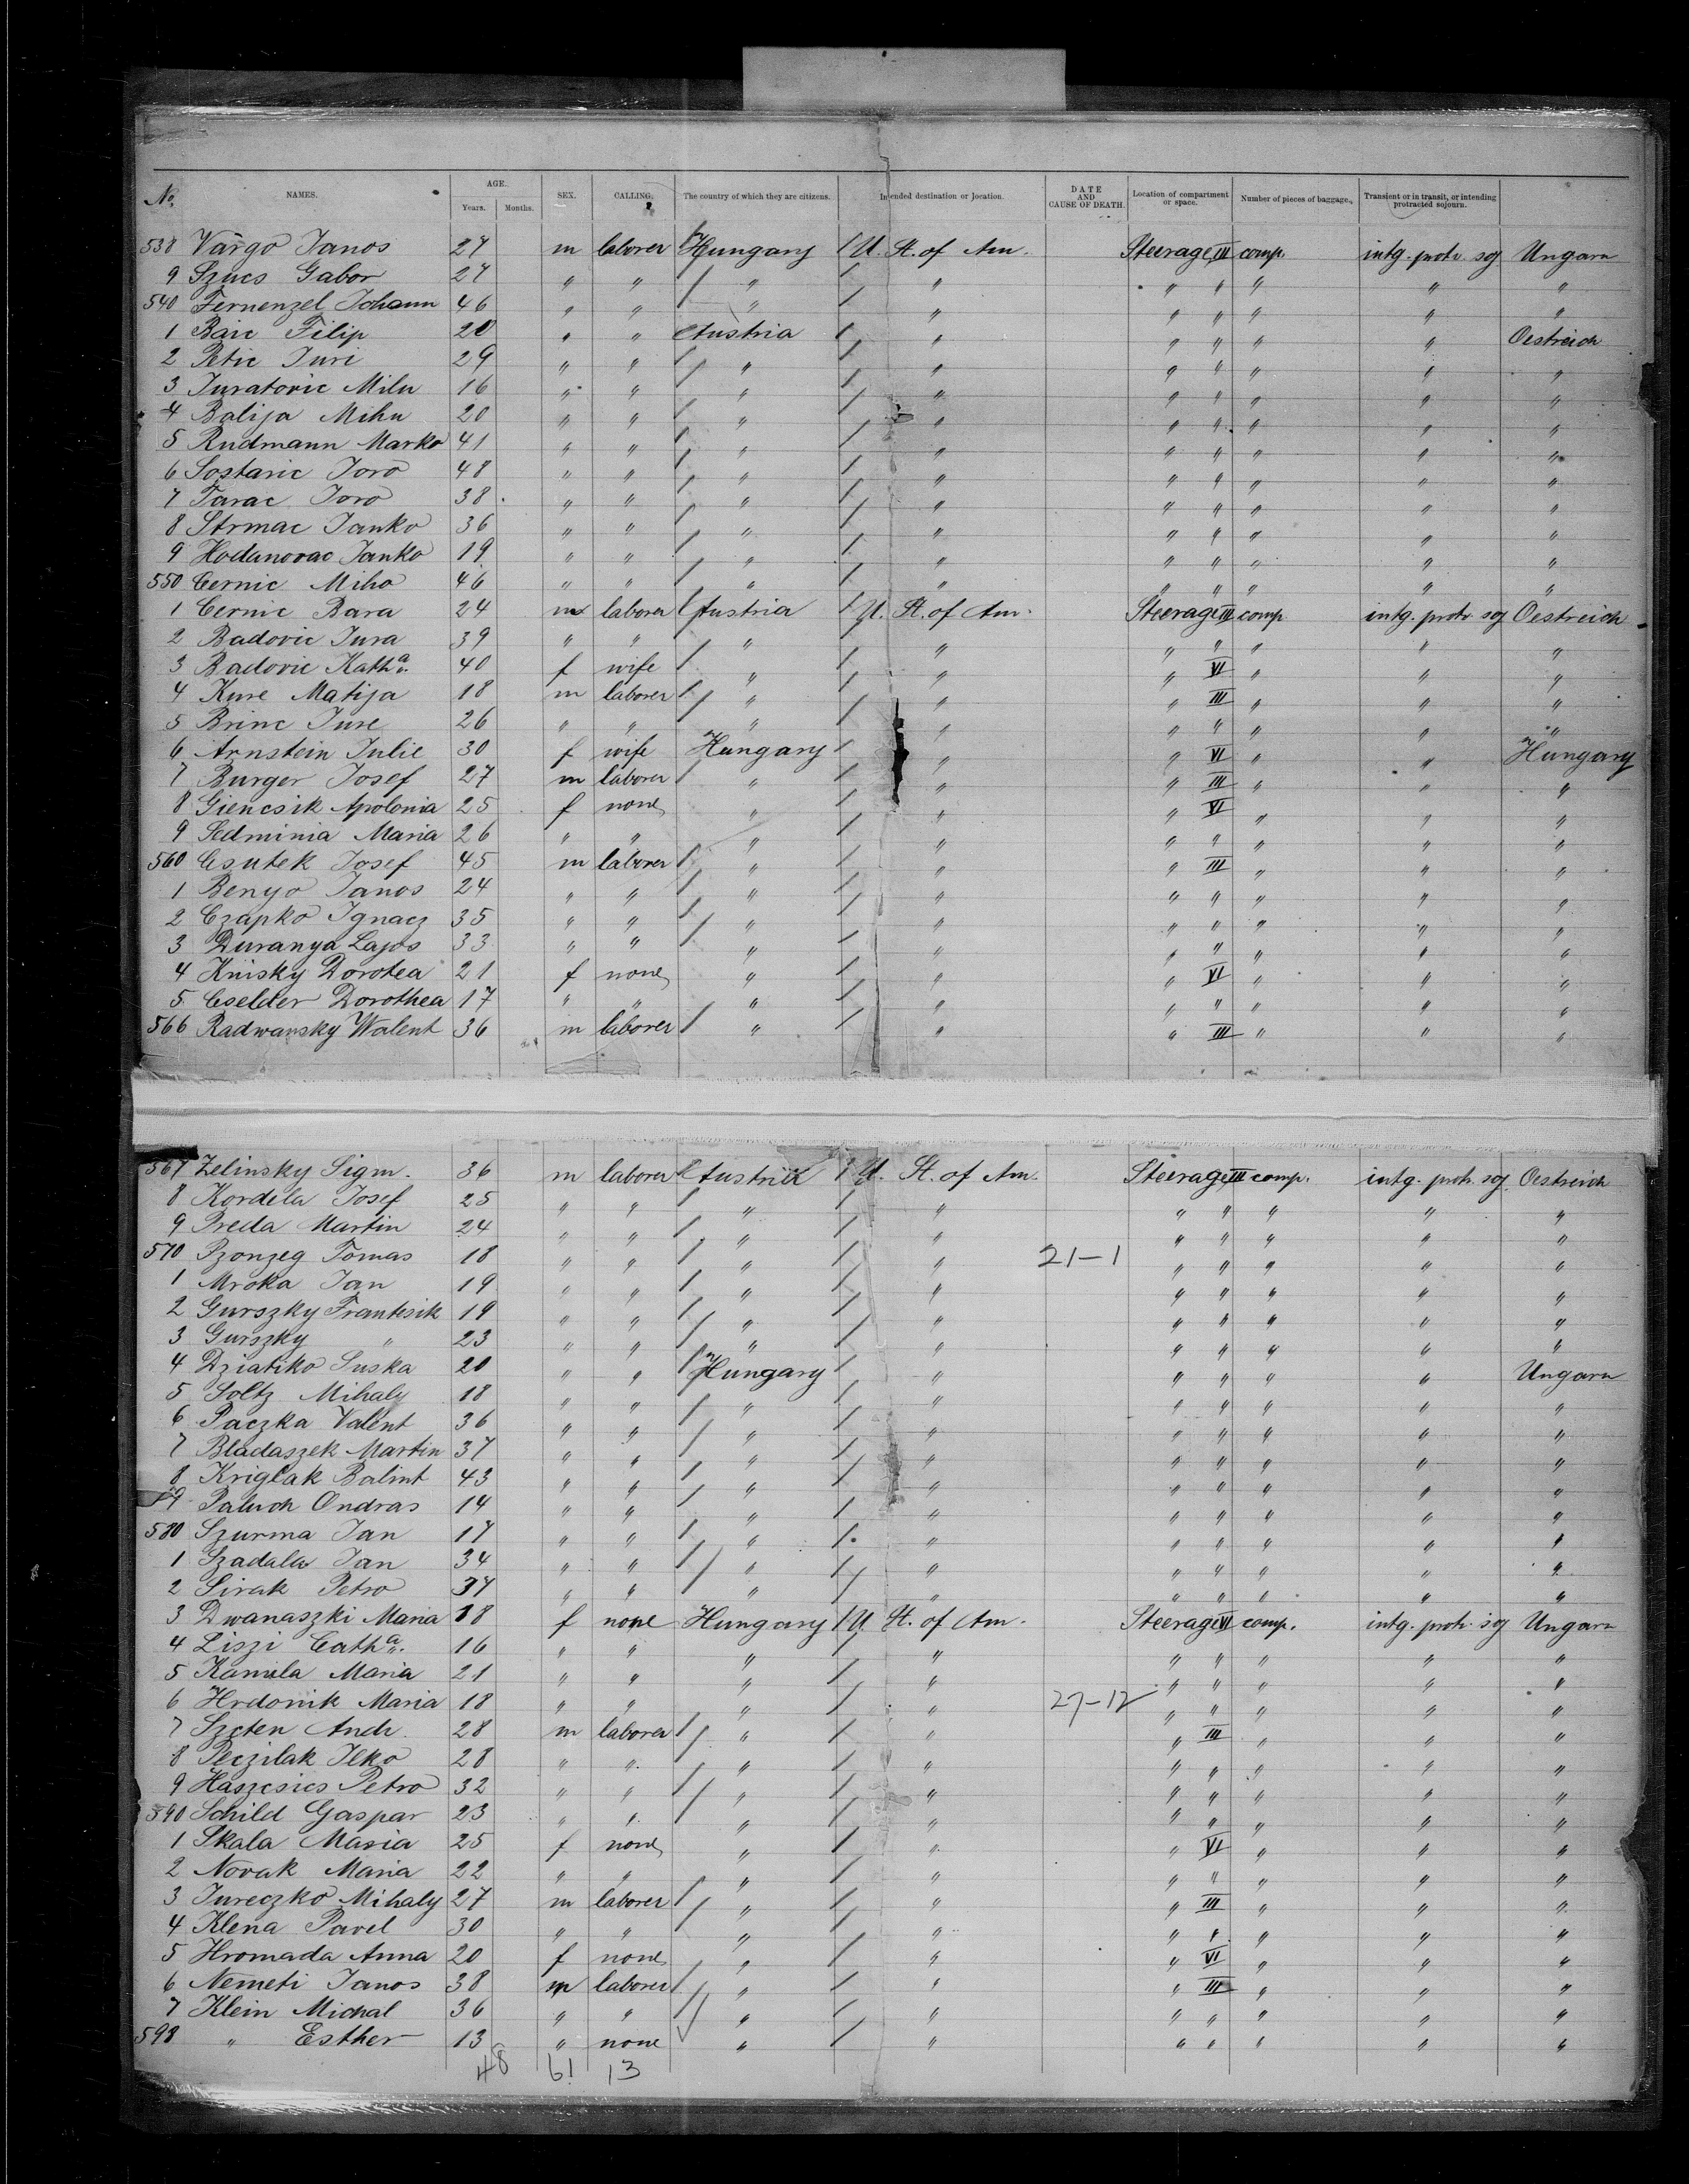 No. NAMES. AGE. Years. Months. SEX. CALLING. The country of which they are citizens. Intended destination or location. DATE AND CAUSE OF DEATH. Location of compartment or space. Number of pieces of baggage. Transient or in transit, or intending protracted sojourn.
538 Vargo Janos 27 m laborer Hungary U. St. of Am. Steerage III comp. intg. protr. soj Ungarn
9 Szucs Gabor 27 " " " " " " " " "
540 Fernenzel Johann 46 " " " " " " " " "
1 Baic Filip 20 " " Austria " " " " " Oestreich
2 Petic Juri 29 " " " " " " " " "
3 Juratovic Milu 16 " " " " " " " " "
4 Balija Mihu 20 " " " " " " " " "
5 Rudmann Marko 41 " " " " " " " " "
6 Sostaric Joro 48 " " " " " " " " "
7 Tarac Joro 38 " " " " " " " " "
8 Strmac Janko 36 " " " " " " " " "
9 Hodanovac Janko 19 " " " " " " " " "
550 Cernic Miho 46 " " " " " " " " "
1 Cernic Bara 24 m laborer Austria U. St. of Am. Steerage III comp intg. protr soj Oestreich
2 Badovic Jura 39 " " " " " " " " "
3 Badovic Kath a. 40 f wife " " " VI " " "
4 Kure Matija 18 m laborer " " " III " " "
5 Brinc Jure 26 " " " " " " " " "
6 Arnstein Julie 30 f wife Hungary " " VI " " Hungary
7 Burger Josef 27 m laborer " " " III " " "
8 Giencsik Apolonia 25 f none " " " VI " " "
9 Sedminia Maria 26 " " " " " " " " "
560 Csutek Josef 45 m laborer " " " III " " "
1 Benyo Janos 24 " " " " " " " " "
2 Czapko Ignacz 35 " " " " " " " " "
3 Duranya Lajos 33 " " " " " " " " "
4 Knisky Dorotea 21 f none " " " VI " " "
5 Cselder Dorothea 17 " " " " " " " " "
566 Radwansky Walent 36 m laborer " " " III " " "
567 Zelinsky Sigm. 36 m laborer Austria U. St. of Am. Steerage III comp. intg. protr. soj. Oestreich
8 Kordela Josef 25 " " " " " " " " "
9 Preda Martin 24 " " " " " " " " "
570 Pzonzeg Tomas 18 " " " " 21-1 " " " " "
1 Mroka Jan 19 " " " " " " " " "
2 Gurszky Frantisik 19 " " " " " " " " "
3 Gurszky " 23 " " " " " " " " "
4 Dziatiko Suska 20 " " Hungary " " " " " Ungarn
5 Soltz Mihaly 18 " " " " " " " " "
6 Paczka Valent 36 " " " " " " " " "
7 Bladaszek Martin 37 " " " " " " " " "
8 Kriglak Balint 43 " " " " " " " " "
9 Paluch Ondras 14 " " " " " " " " "
580 Szurma Jan 17 " " " " " " " " "
1 Szadala Jan 34 " " " " " " " " "
2 Sirak Petro 37 " " " " " " " " "
3 Dwanaszki Maria 18 f none Hungary U. St. of Am. Steerage VI comp. intg. protr. soj Ungarn
4 Liszi Cath a. 16 " " " " " " " " "
5 Kamila Maria 21 " " " " " " " " "
6 Hrdonik Maria 18 " " " " 27-12 " " " " "
7 Szcten Andr. 28 m laborer " " " III " " "
8 Peczilak Ilko 28 " " " " " " " " "
9 Haszcsics Petro 32 " " " " " " " " "
590 Schild Gaspar 23 " " " " " " " " "
1 Skala Maria 25 f none " " " VI " " "
2 Novak Maria 22 " " " " " " " " "
3 Jureczko Mihaly 27 m laborer " " " III " " "
4 Klena Pavel 30 " " " " " " " " "
5 Hromada Anna 20 f none " " " VI " " "
6 Nemeti Janos 38 m laborer " " " III " " "
7 Klein Michal 36 " " " " " " " " "
598 " Esther 13 " none " " " " " " "
48 61 13